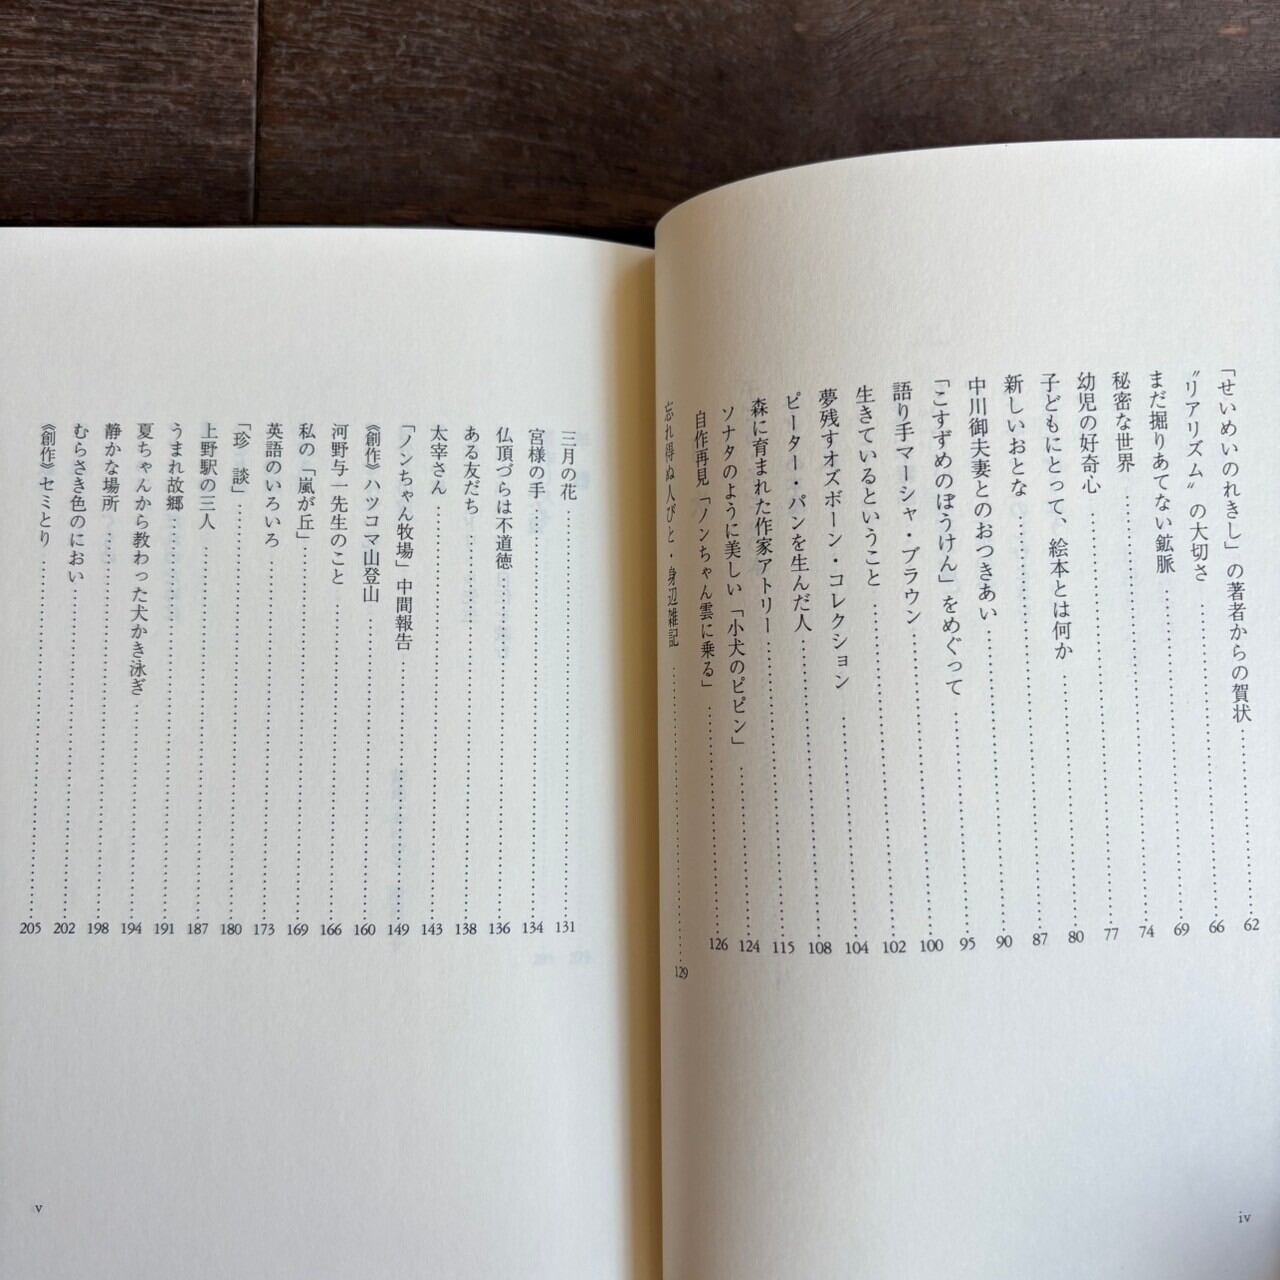 「せいめいのれきし」の著者からの賀状……62
〝リアリズム〟の大切さ……66
まだ掘りあてない鉱脈……69
秘密な世界……74
幼児の好奇心……77
子どもにとって、絵本とは何か……80
新しいおとな……87
中川御夫妻とのおつきあい……90
「こすずめのぼうけん」をめぐって……95
語り手マーシャ・ブラウン……100
生きているということ……102
夢残すオズボーン・コレクション……104
ピーター・パンを生んだ人……108
森に育まれた作家アトリー……115
ソナタのように美しい「小犬のピピン」……124
自作再見「ノンちゃん雲に乗る」……126
忘れ得ぬ人びと・身辺雑記……129
iv
三月の花……131
宮様の手……134
仏頂づらは不道徳……136
ある友だち……138
太宰さん……143
「ノンちゃん牧場」中間報告……149
《創作》ハツコマ山登山……160
河野与一先生のこと……166
私の「嵐が丘」……169
英語のいろいろ……173
「珍　談」……180
上野駅の三人……187
うまれ故郷……191
夏ちゃんから教わった犬かき泳ぎ……194
静かな場所……198
むらさき色のにおい……202
《創作》セミとり……205
v